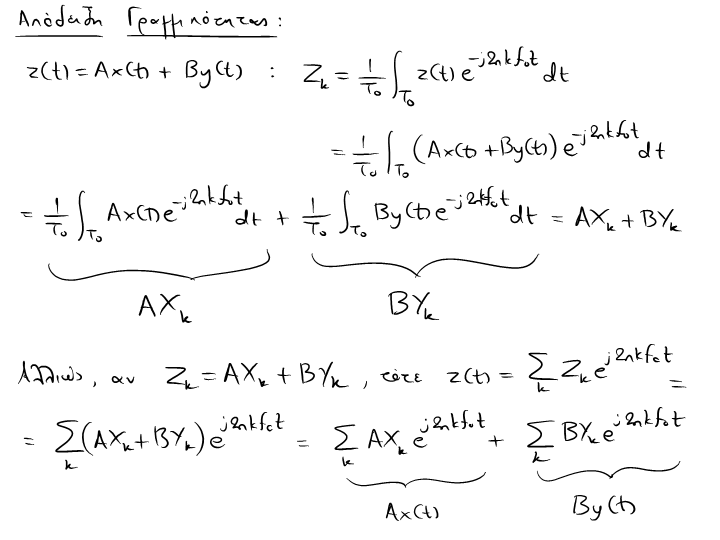 Απόδειξη Γραμμικότητας:
z(t) = Ax(t) + By(t) : Z_k = 1/T₀ ∫_{T₀} z(t) e^{-j2πkf₀t} dt
= 1/T₀ ∫_{T₀} (Ax(t) + By(t)) e^{-j2πkf₀t} dt
= 1/T₀ ∫_{T₀} Ax(t) e^{-j2πkf₀t} dt + 1/T₀ ∫_{T₀} By(t) e^{-j2πkf₀t} dt = AX_k + BY_k
AX_k BY_k
Αλλιώς, αν Z_k = AX_k + BY_k, τότε z(t) = Σ_k Z_k e^{j2πkf₀t} =
= Σ_k (AX_k + BY_k) e^{j2πkf₀t} = Σ_k AX_k e^{j2πkf₀t} + Σ_k BY_k e^{j2πkf₀t}
Ax(t) By(t)